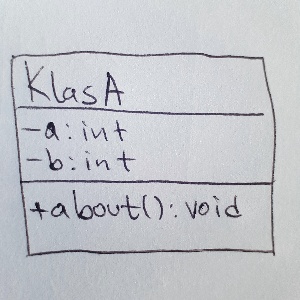 KlasA
-a: int
-b: int
+about(): void